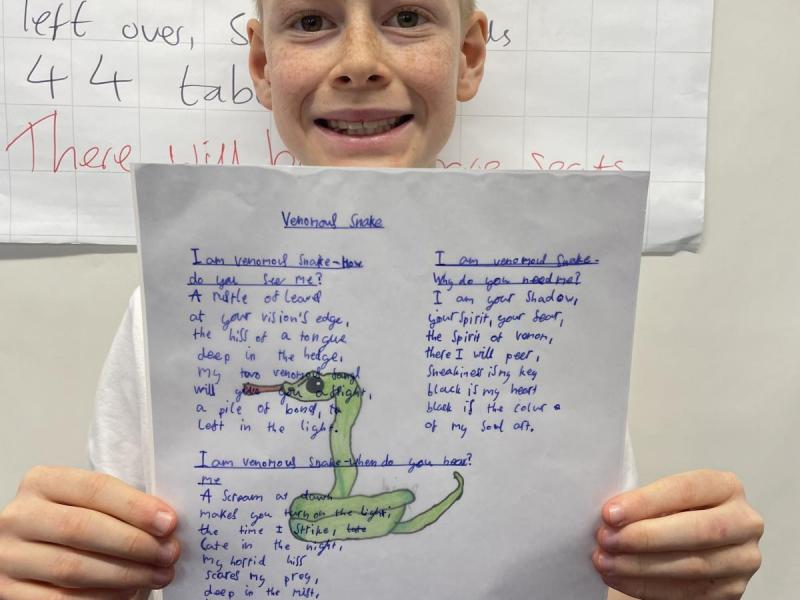 left over, S
44 tab
There will b seats
Venomous Snake
I am venomous snake - How
do you see me?
A rustle of leavd
at your vision's edge,
the hiss of a tongue
deep in the hedge,
my two venomous fangs
will give you a fright,
a pile of bond, to
left in the light.
I am venomous snake -
Why do you need me?
I am your shadow,
your spirit, your fear,
the spirit of venom,
there I will peer,
Sneakiness is my key
black is my heart
black is the colur
of my soul art.
I am venomous snake - when do you hear?
me
A scream at dawn
makes you turn on the light,
the time I strike,
Late in the night,
my horrid hiss
scares my prey,
deep in the mist,